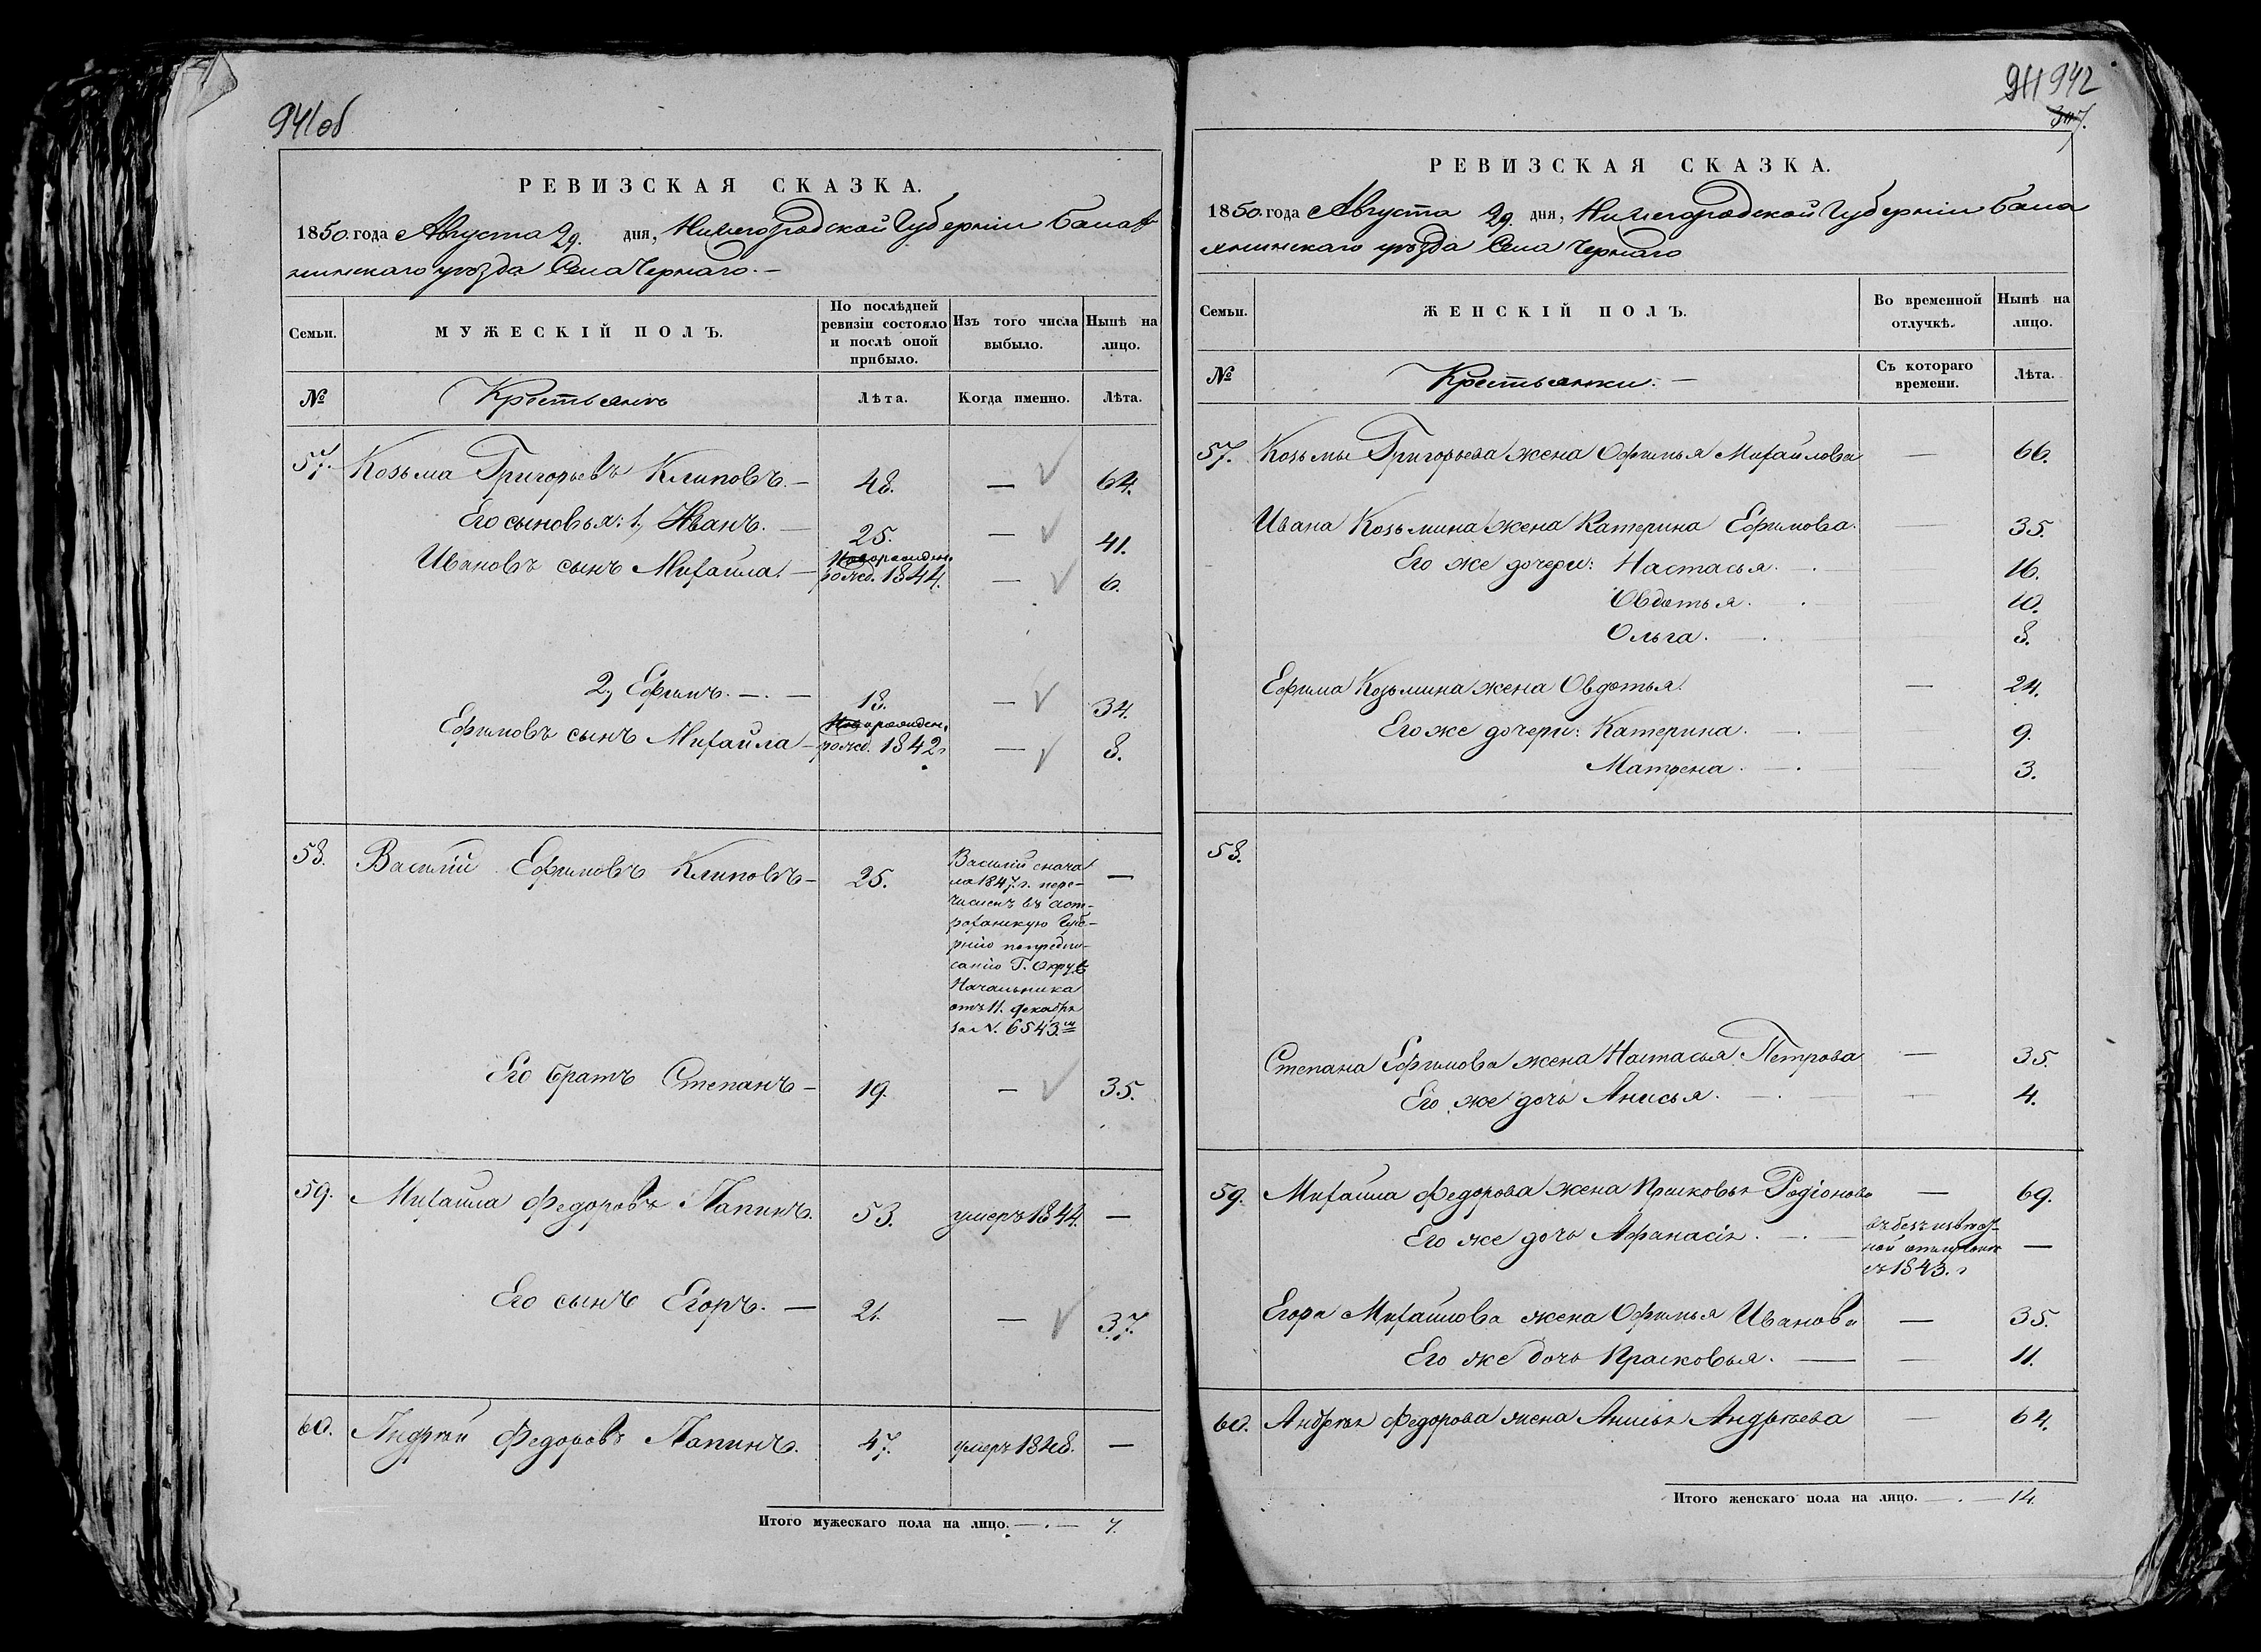 941об
РЕВИЗСКАЯ СКАЗКА.
1850. года Августа 29. дня, Нижегородской Губерніи Балах
нинскаго уѣзда Села Чернаго. —
Семьи.
МУЖЕСКІЙ ПОЛЪ.
По послѣдней ревизіи состояло и послѣ оной прибыло.
Изъ того числа выбыло.
Нынѣ на лицо.
№
Крестьянъ
Лѣта.
Когда именно.
Лѣта.
57. Козьма Григорьевъ Климовъ. — 48. — 64.
Его сыновья: 1, Иванъ. — 25. — 41.
Ивановъ сынъ Михайла. — рожд. 1844. — 6.
2, Ефимъ. — . — 18. — 34.
Ефимовъ сынъ Михайла — рожд. 1842 г — 8.
58. Василій Ефимовъ Климовъ — 25. —
Василій снача
ла 1847. г. пере-
численъ въ Аст-
раханскую Губе-
рнію по предпи-
санію Г. Окруж
Начальника
отъ 11. декабря
за N. 6543.
Его братъ Степанъ — 19. — 35.
59. Михайла Федоровъ Лапинъ. 53. умеръ 1844. —
Его сынъ Егоръ. — 21. — 37.
60. Андрей Федоровъ Лапинъ. 47. умеръ 1848. —
Итого мужескаго пола на лицо. — . — 7.
941 942
307.
РЕВИЗСКАЯ СКАЗКА.
1850. года Августа 29 дня, Нижегородской Губерніи Бала
хнинскаго уѣзда Села Чернаго
Семьи.
ЖЕНСКІЙ ПОЛЪ.
Во временной отлучкѣ.
Нынѣ на лицо.
№
Крестьянки. —
Съ котораго времени.
Лѣта.
57. Козьмы Григорьева жена Офимья Михайлова — 66.
Ивана Козьмина жена Катерина Ефимова. — 35.
Его же дочери: Настасья. — . 16.
Овдотья. . 10.
Ольга. — . 8.
Ефима Козьмина жена Овдотья. — 24.
Его же дочери: Катерина. — . 9.
Матрена. — . 3.
58.
Степана Ефимова жена Настасья Петрова — 35.
Его же дочь Анисья. — . 4.
59. Михайла Федорова жена Прасковья Родіонова — 69.
Его же дочь Афанасія. — . —
въ безъизвѣст-
ной отлучкѣ
съ 1843. г
Егора Михайлова жена Офимья Иванова — 35.
Его же дочь Прасковья. — — 11.
60. Андрея Федорова жена Анисья Андреева — 64.
Итого женскаго пола на лицо. — . — 14.